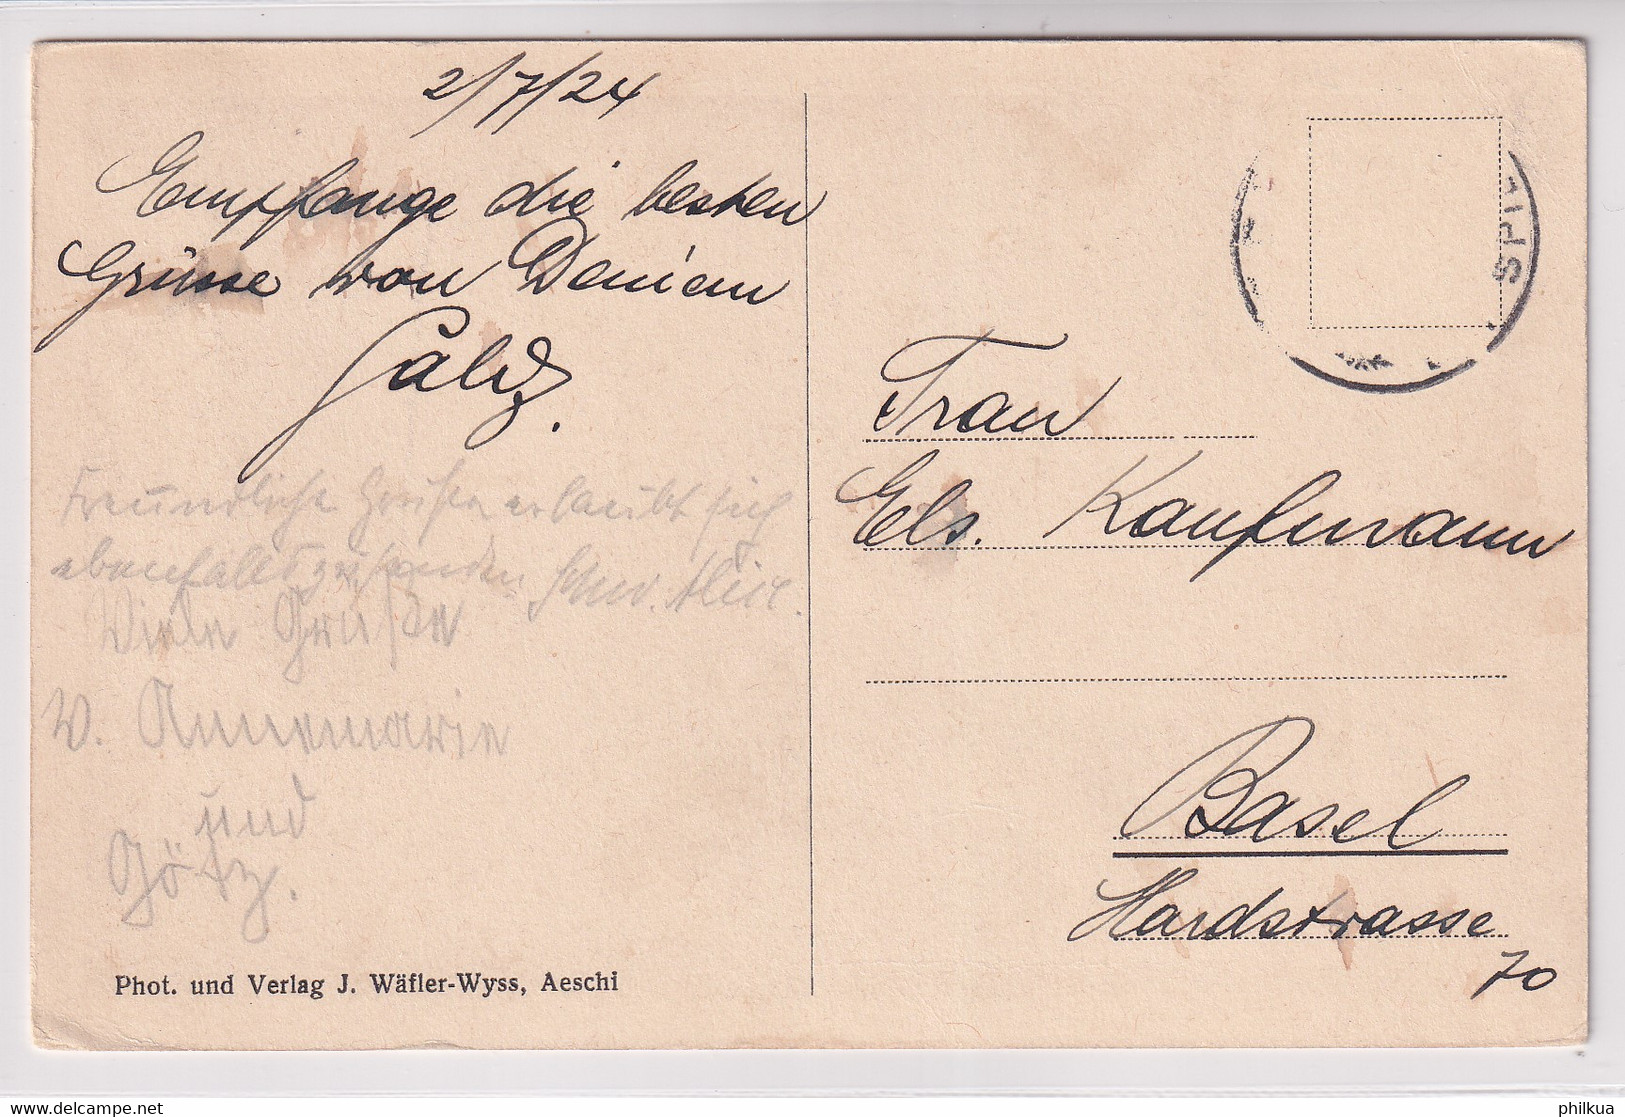 2/7/24
Empfange die besten
Grüsse von Deinem
Freundliche Grüße erlaubt sich
ebenfalls zu senden Schw. Alice.
Viele Grüße
v. Annemarie
und
Götz.
Phot. und Verlag J. Wäfler-Wyss, Aeschi
SPI
Frau
Els. Kaufmann
Basel
Hardstrasse
70
philkua